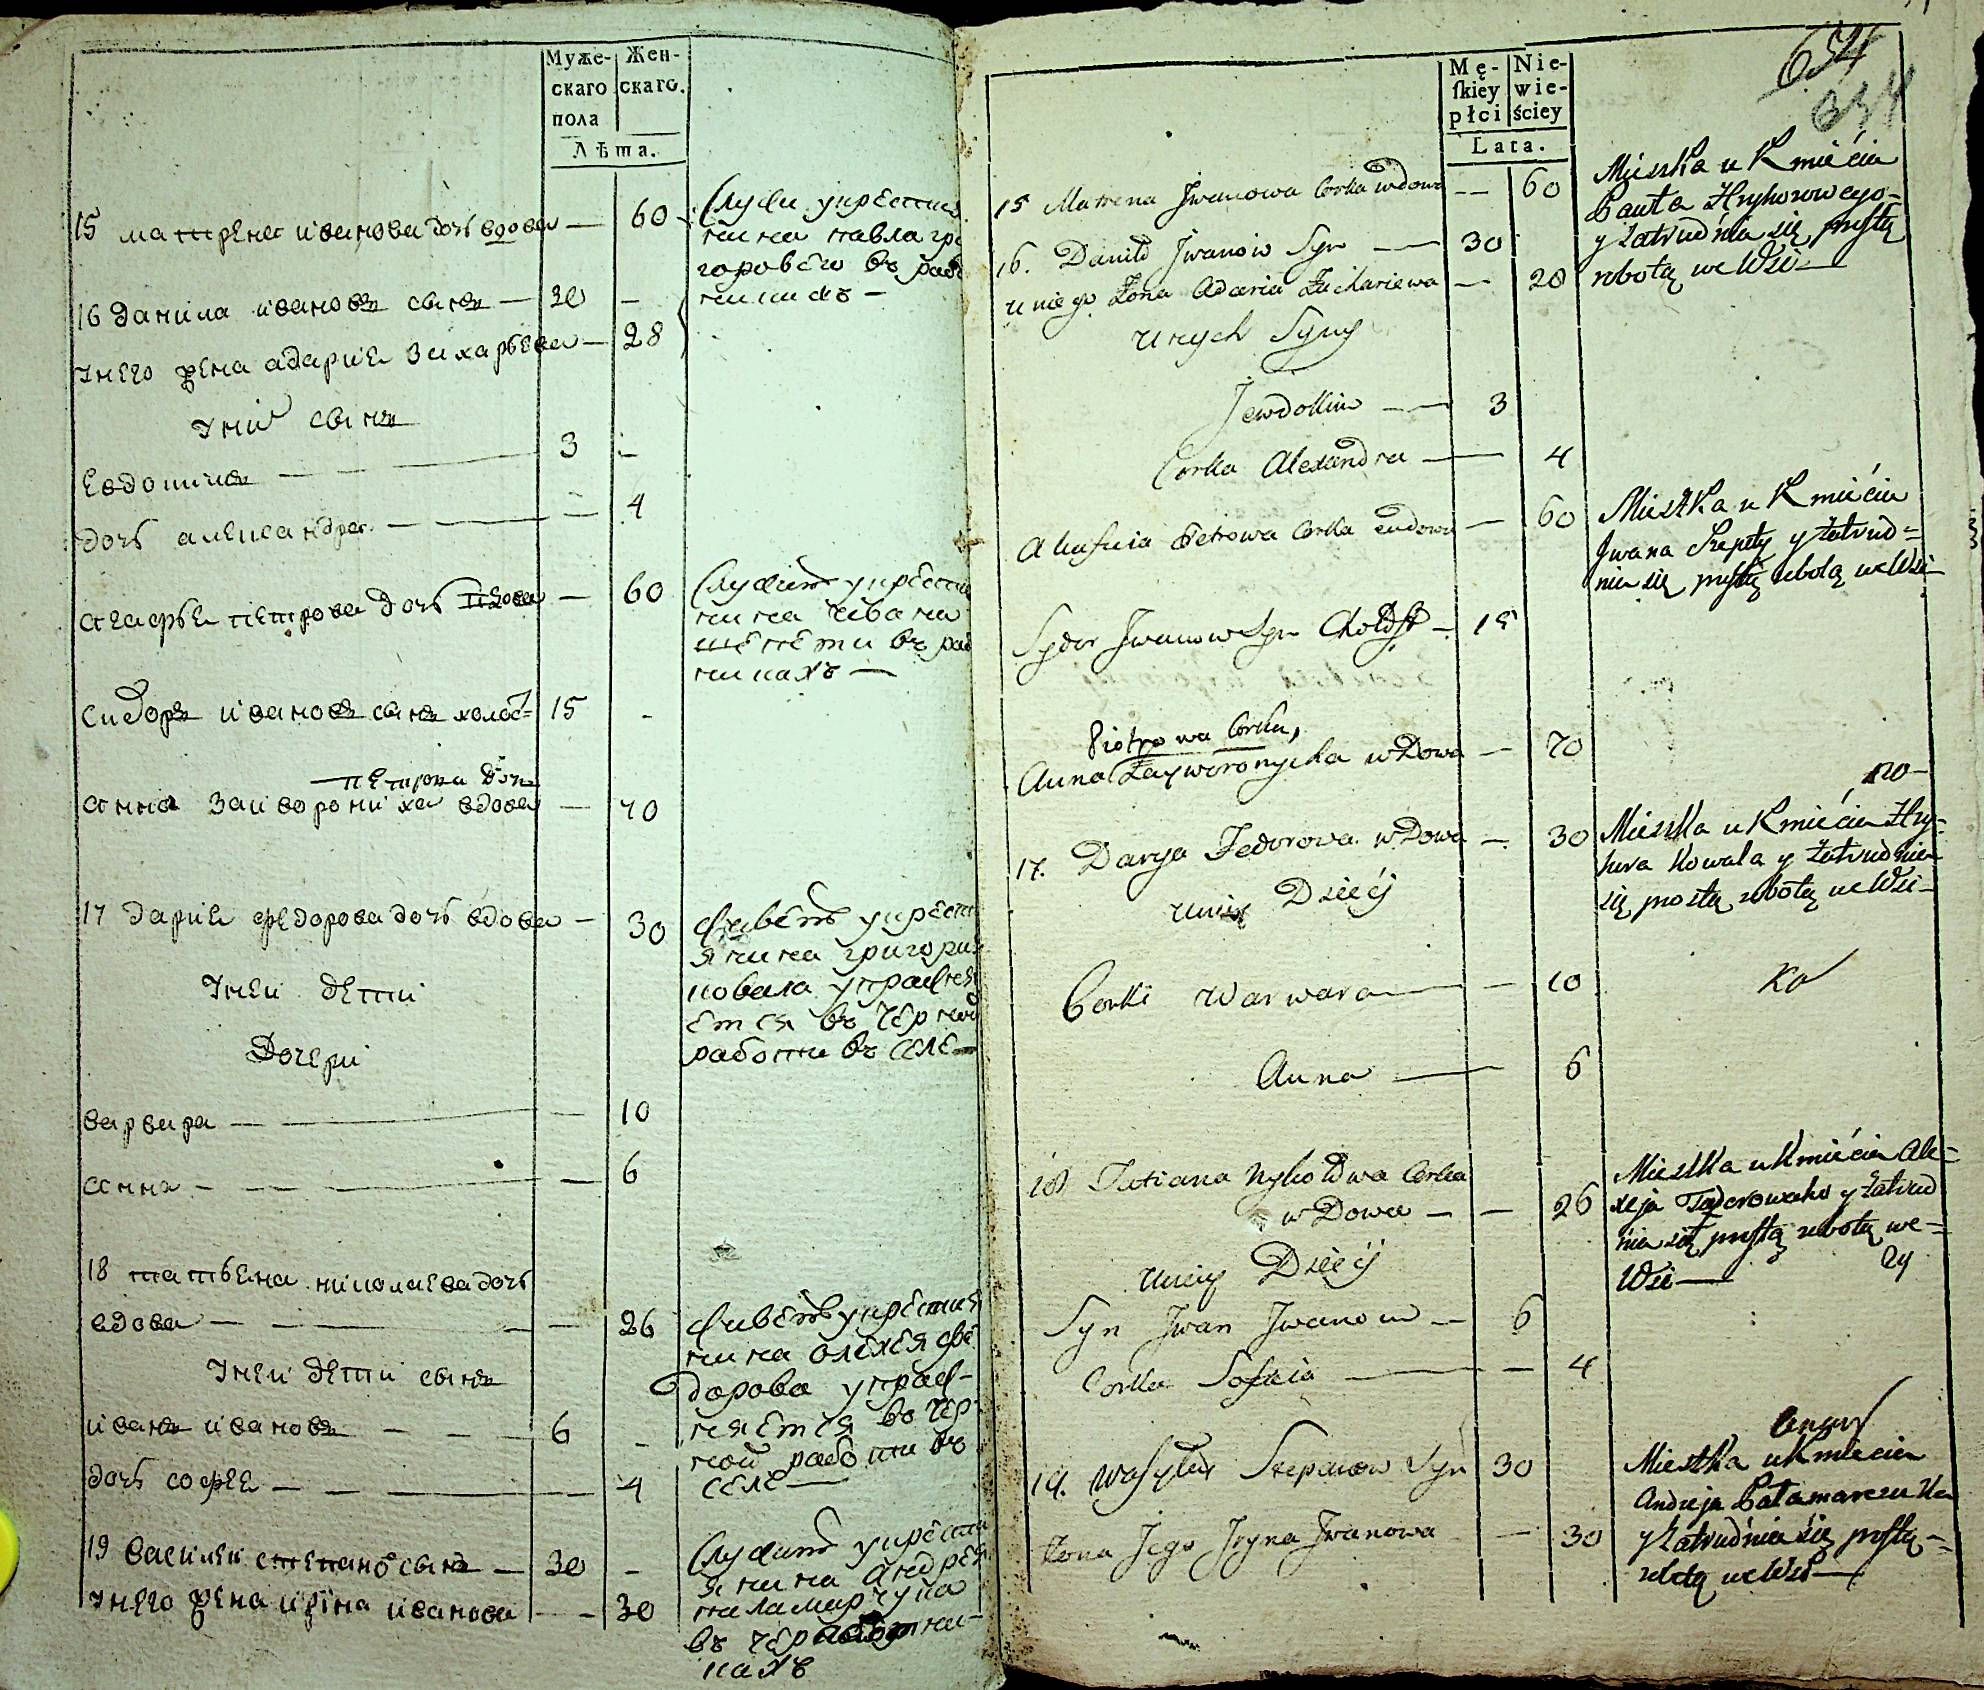 Муже-
скаго
пола
Жен-
скаго.
Лѣта.
15 матрена иванова дочь вдова — 60
16 данила ивановъ сынъ — 30 -
унего жена адария захарьева — 28
унй сынъ
евдокимъ — 3
дочь александра — 4
агафья петрова дочь вдова — 60
сидоръ ивановъ сынъ холос= 15 -
петрова дочь
анна заиворониха вдова — 70
17 дария федорова дочь вдова — 30
унеи дети
Дочери
варвара — 10
анна — 6
18 татьяна николаева дочь
вдова — 26
унеи дети сынъ
иванъ ивановъ — 6 -
дочь софея — 4
19 василеи степано сынъ — 30 -
унего жена ирина иванова — 30
павла гри
горовего въ рабо
Служитъ укрестия
нина ивана
шепети въ раб
никахъ —
живетъ укрест
янина григория
ковала упражня
ется въ черной
работи въ селе —
живетъ укрестия
нина олексея фе
дорова упраж-
няется въ чер
ной работи въ
селе —
Служитъ укрести
янина андрея
паламарчука
654
654
Mę-
ſkiey
płci
Nie-
wie-
ściey
Lata.
15 Matrena Jwanowa Corka wdowa — 60
16. Daniło Jwanow Syn — 30
u niego Żona Adaria Zachariewa — 28
u nych Syny
Jewdokim — 3
Corka Alexandra — 4
Ahafia Petrowa Corka wdowa — 60
Sydor Jwanow Syn Chołost — 15
Piotrowa Corka,
Anna Zayworonycha wdowa — 70
17. Darya Fedorowa wdowa — 30
u niey Dzieći
Corki Warwara — 10
Anna — 6
18 Tatiana Nykołowa Corka
wdowa — 26
u niey Dzieći
Syn Jwan Jwanow — 6
Corka Sofia — 4
19. Wasyley Stepanow Syn 30
Żona Jego Jryna Jwanowa — 30
Mieszka u Kmiecia
Pauła Hryhorowego
y zatrudnia się prostą
robotą we Wsi —
Mieszka u Kmiecia
Jwana Szepety y zatrud=
nia się prostą robotą we Wsi
Mieszka u Kmiecia Hry=
hora Kowala y zatrudnia
się prostą robotą we Wsi —
Mieszka u Kmiecia Ale=
xeja Fedorowoho y zatrud
nia się prostą robotą we=
Wsi —
Mieszka u Kmiecia
Andreja Pałamarczuka
y zatrudnia się prostą=
robotą we Wsi —